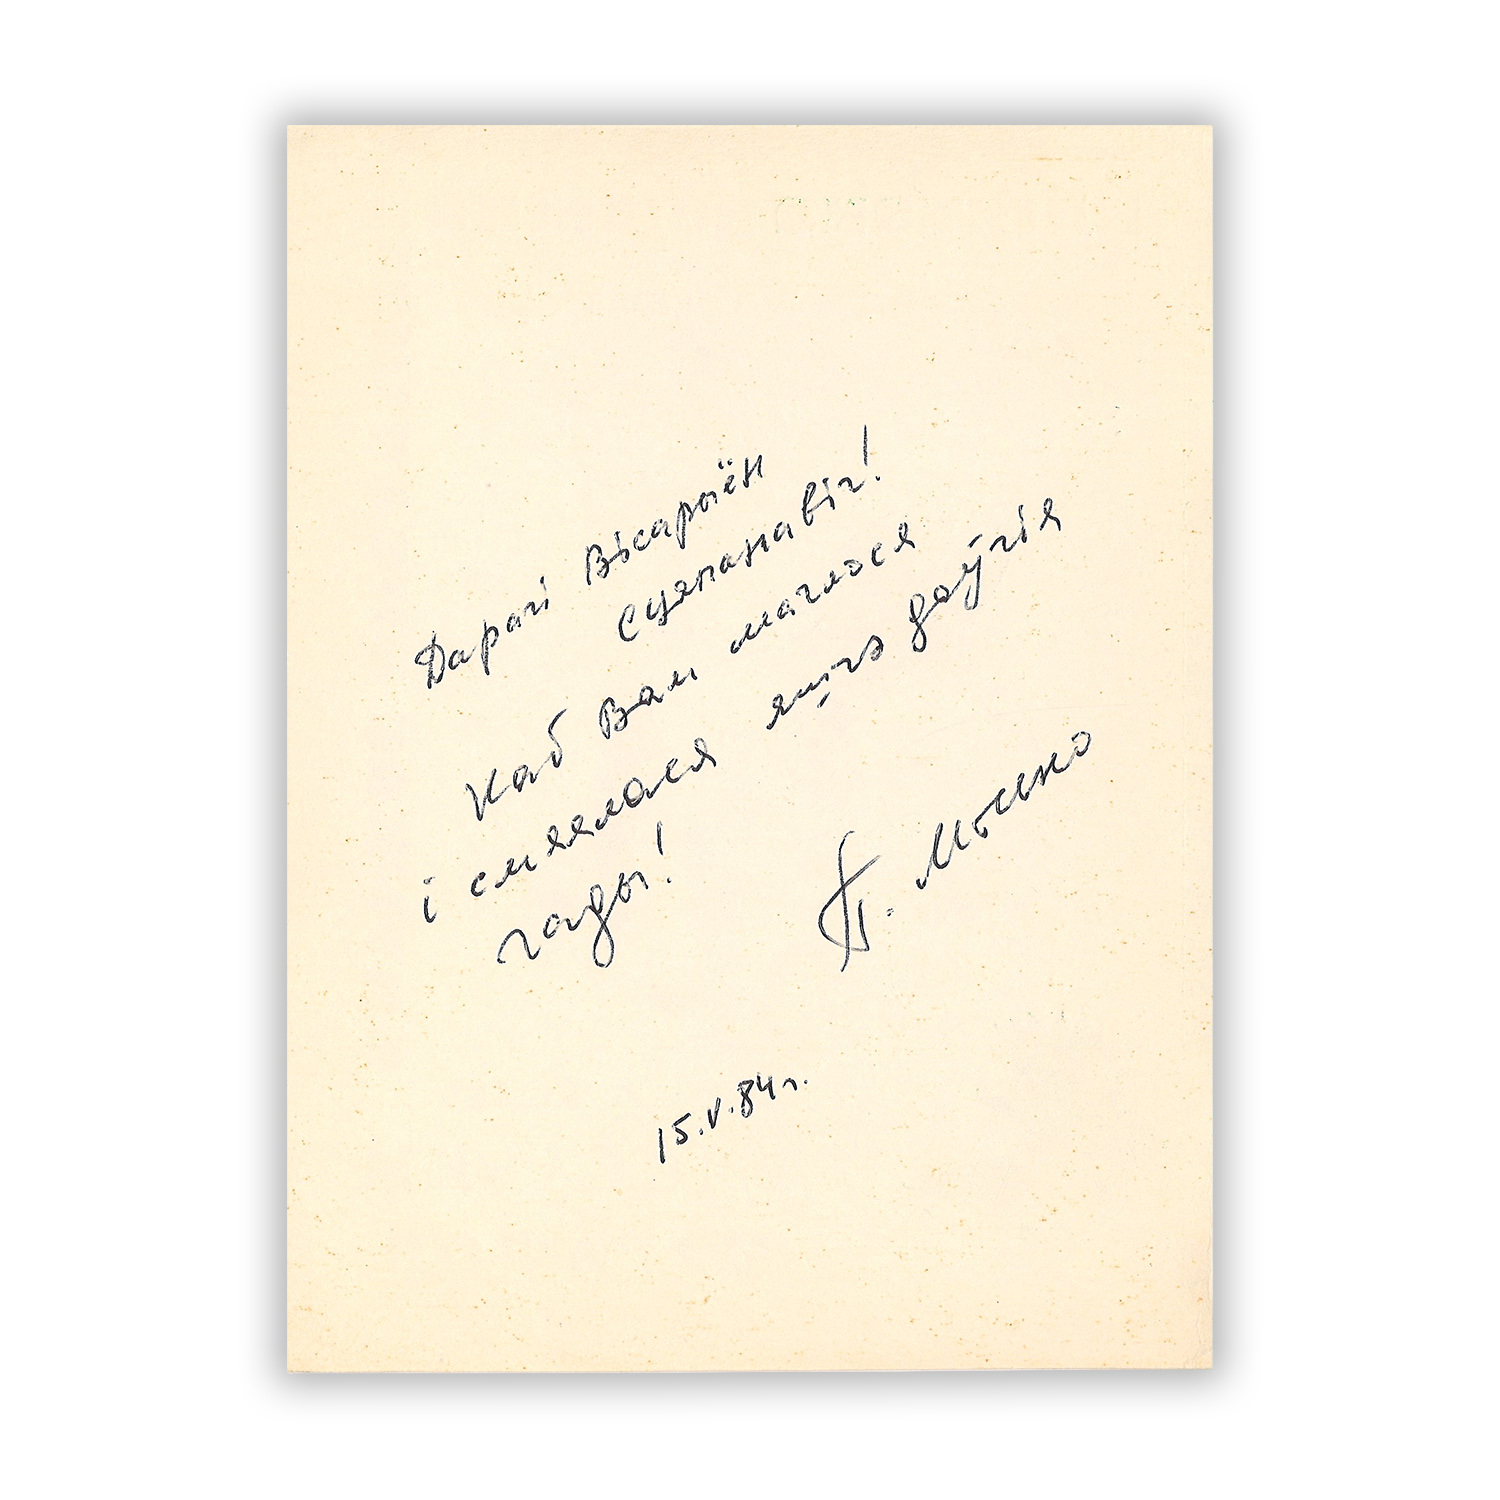 Дарагі Вісарыён
Сцяпанавіч!
Каб Вам маглося
і смяялася яшчэ доўгія
гады!
П. Місько
15.V.84 г.